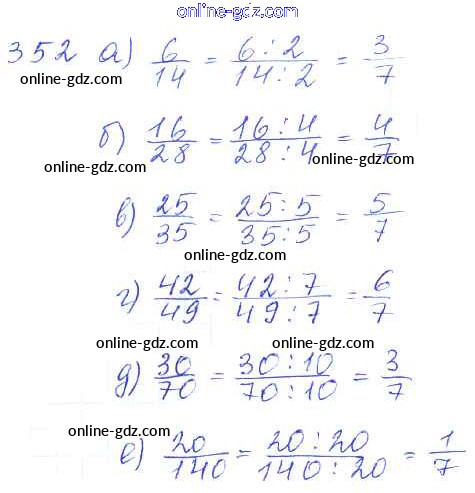 online-gdz.com
352 а) 6/14 = 6:2/14:2 = 3/7
online-gdz.com online-gdz.com
б) 16/28 = 16:4/28:4 = 4/7
online-gdz.com online-gdz.com
в) 25/35 = 25:5/35:5 = 5/7
online-gdz.com
г) 42/49 = 42:7/49:7 = 6/7
online-gdz.com online-gdz.com
д) 30/70 = 30:10/70:10 = 3/7
online-gdz.com
е) 20/140 = 20:20/140:20 = 1/7
online-gdz.com online-gdz.com